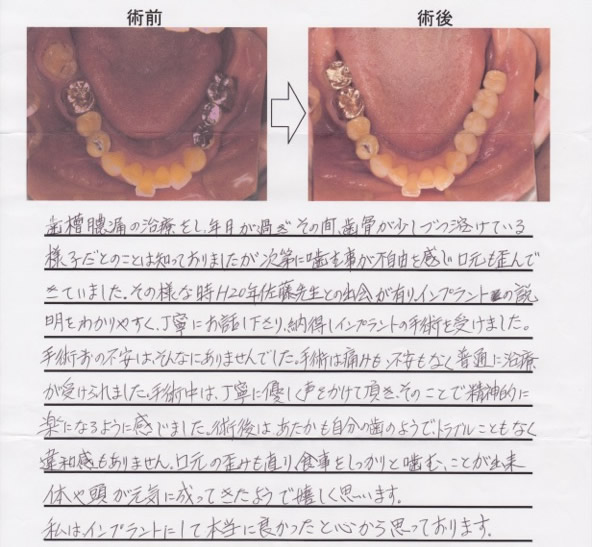 術前
術後
歯槽膿漏の治療をし、年月が過ぎその間、歯骨が少しづつ溶けている
様子だとのことは知っておりましたが次第に噛む事が不自由を感じ口元も歪んで
きていました。その様な時H20年佐藤先生との出会が有り、インプラントの説
明をわかりやすく、丁寧にお話し下さり、納得しインプラントの手術を受けました。
手術の不安は、そんなにありませんでした。手術は痛みも、不安もなく普通に治療
が受けられました。手術中は、丁寧に優しく声をかけて頂き、そのことで精神的に
楽になるように感じました。術後は、あたかも自分の歯のようで、トラブルこともなく
違和感もありません。口元の歪みも直り、食事をしっかりと噛む、ことが出来
体や頭が元気に成ってきたようで嬉しく思います。
私は、インプラントにして本当に良かったと心から思っております。